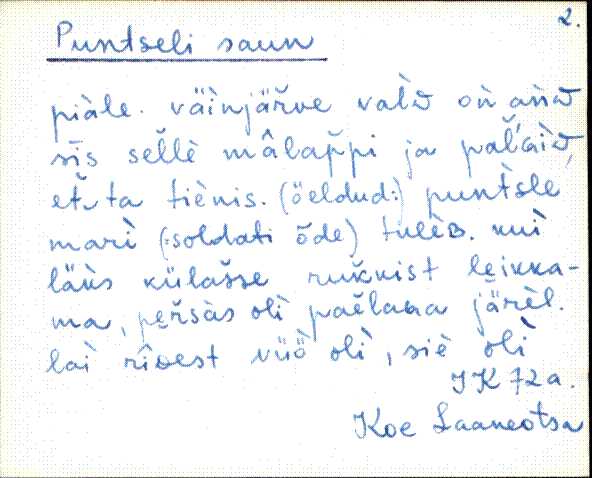 2.
Puntseli saun
piàle. väìnjäřve vald̀ oǹ añd
sīs sel̆lè mâlap̆pi ja pal̆'aid̀,
et̆ ta tiènis. (öeldud:) puǹtsle
marì (:soldati õde) tulèʙ. kuì
läk̀s külas̆se ruk̆kist leikka-
ma, per̆sàs olì paĕlaɢa järèl.
laì rîdest vüö̀ olì, siè olì
JK 72a.
Koe Laaneotsa